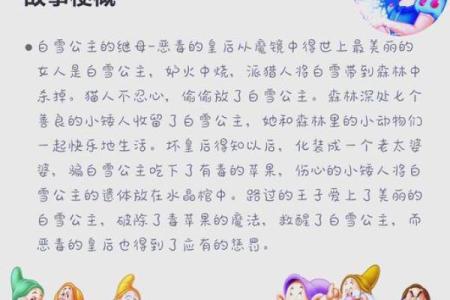 故事梗概
白雪公主的继母-恶毒的皇后从魔镜中得世上最美丽的
女人是白雪公主，妒火中烧，派猎人将白雪带到森林中
杀掉。猫人不忍心，偷偷放了白雪公主。森林深处七个
善良的小矮人收留了白雪公主，她和森林里的小动物们
一起快乐地生活。坏皇后得知以后，化装成一个老太婆
婆，骗白雪公主吃下了有毒的苹果，伤心的小矮人将白
雪公主的遗体放在水晶棺中。路过的王子爱上了美丽的
白雪公主，破除了毒苹果的魔法，救醒了白雪公主，而
恶毒的皇后也得到了应有的惩罚。